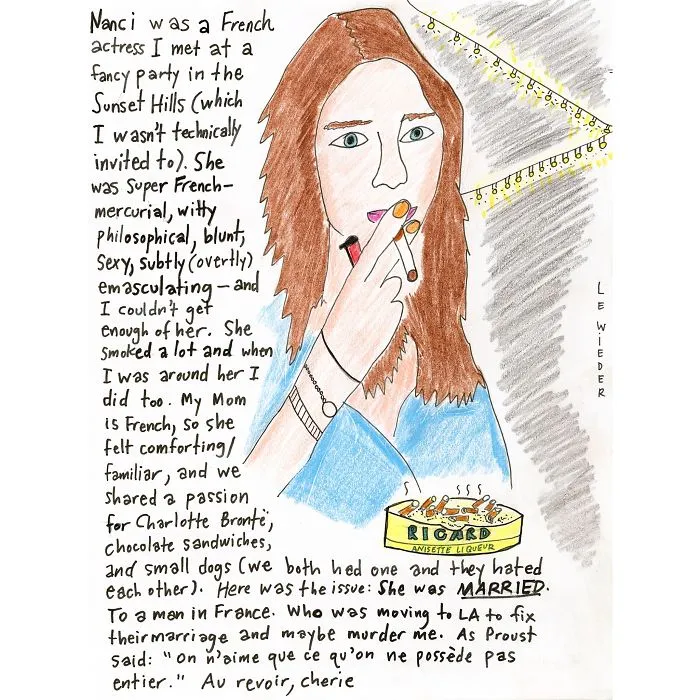 Nanci was a French
actress I met at a
fancy party in the
Sunset Hills (which
I wasn't technically
invited to). She
was Super French—
mercurial, witty
philosophical, blunt,
Sexy, subtly (overtly)
emasculating — and
I couldn't get
enough of her. She
smoked a lot and when
I was around her I
did too. My Mom
is French, so she
felt comforting/
familiar, and we
shared a passion
for Charlotte Brontë,
chocolate sandwiches,
and small dogs (we both had one and they hated
each other). Here was the issue: She was MARRIED.
To a man in France. Who was moving to LA to fix
their marriage and maybe murder me. As Proust
said: "On n'aime que ce qu'on ne possède pas
entier." Au revoir, cherie
RICARD
ANISETTE LIQUEUR
LEWIEDER